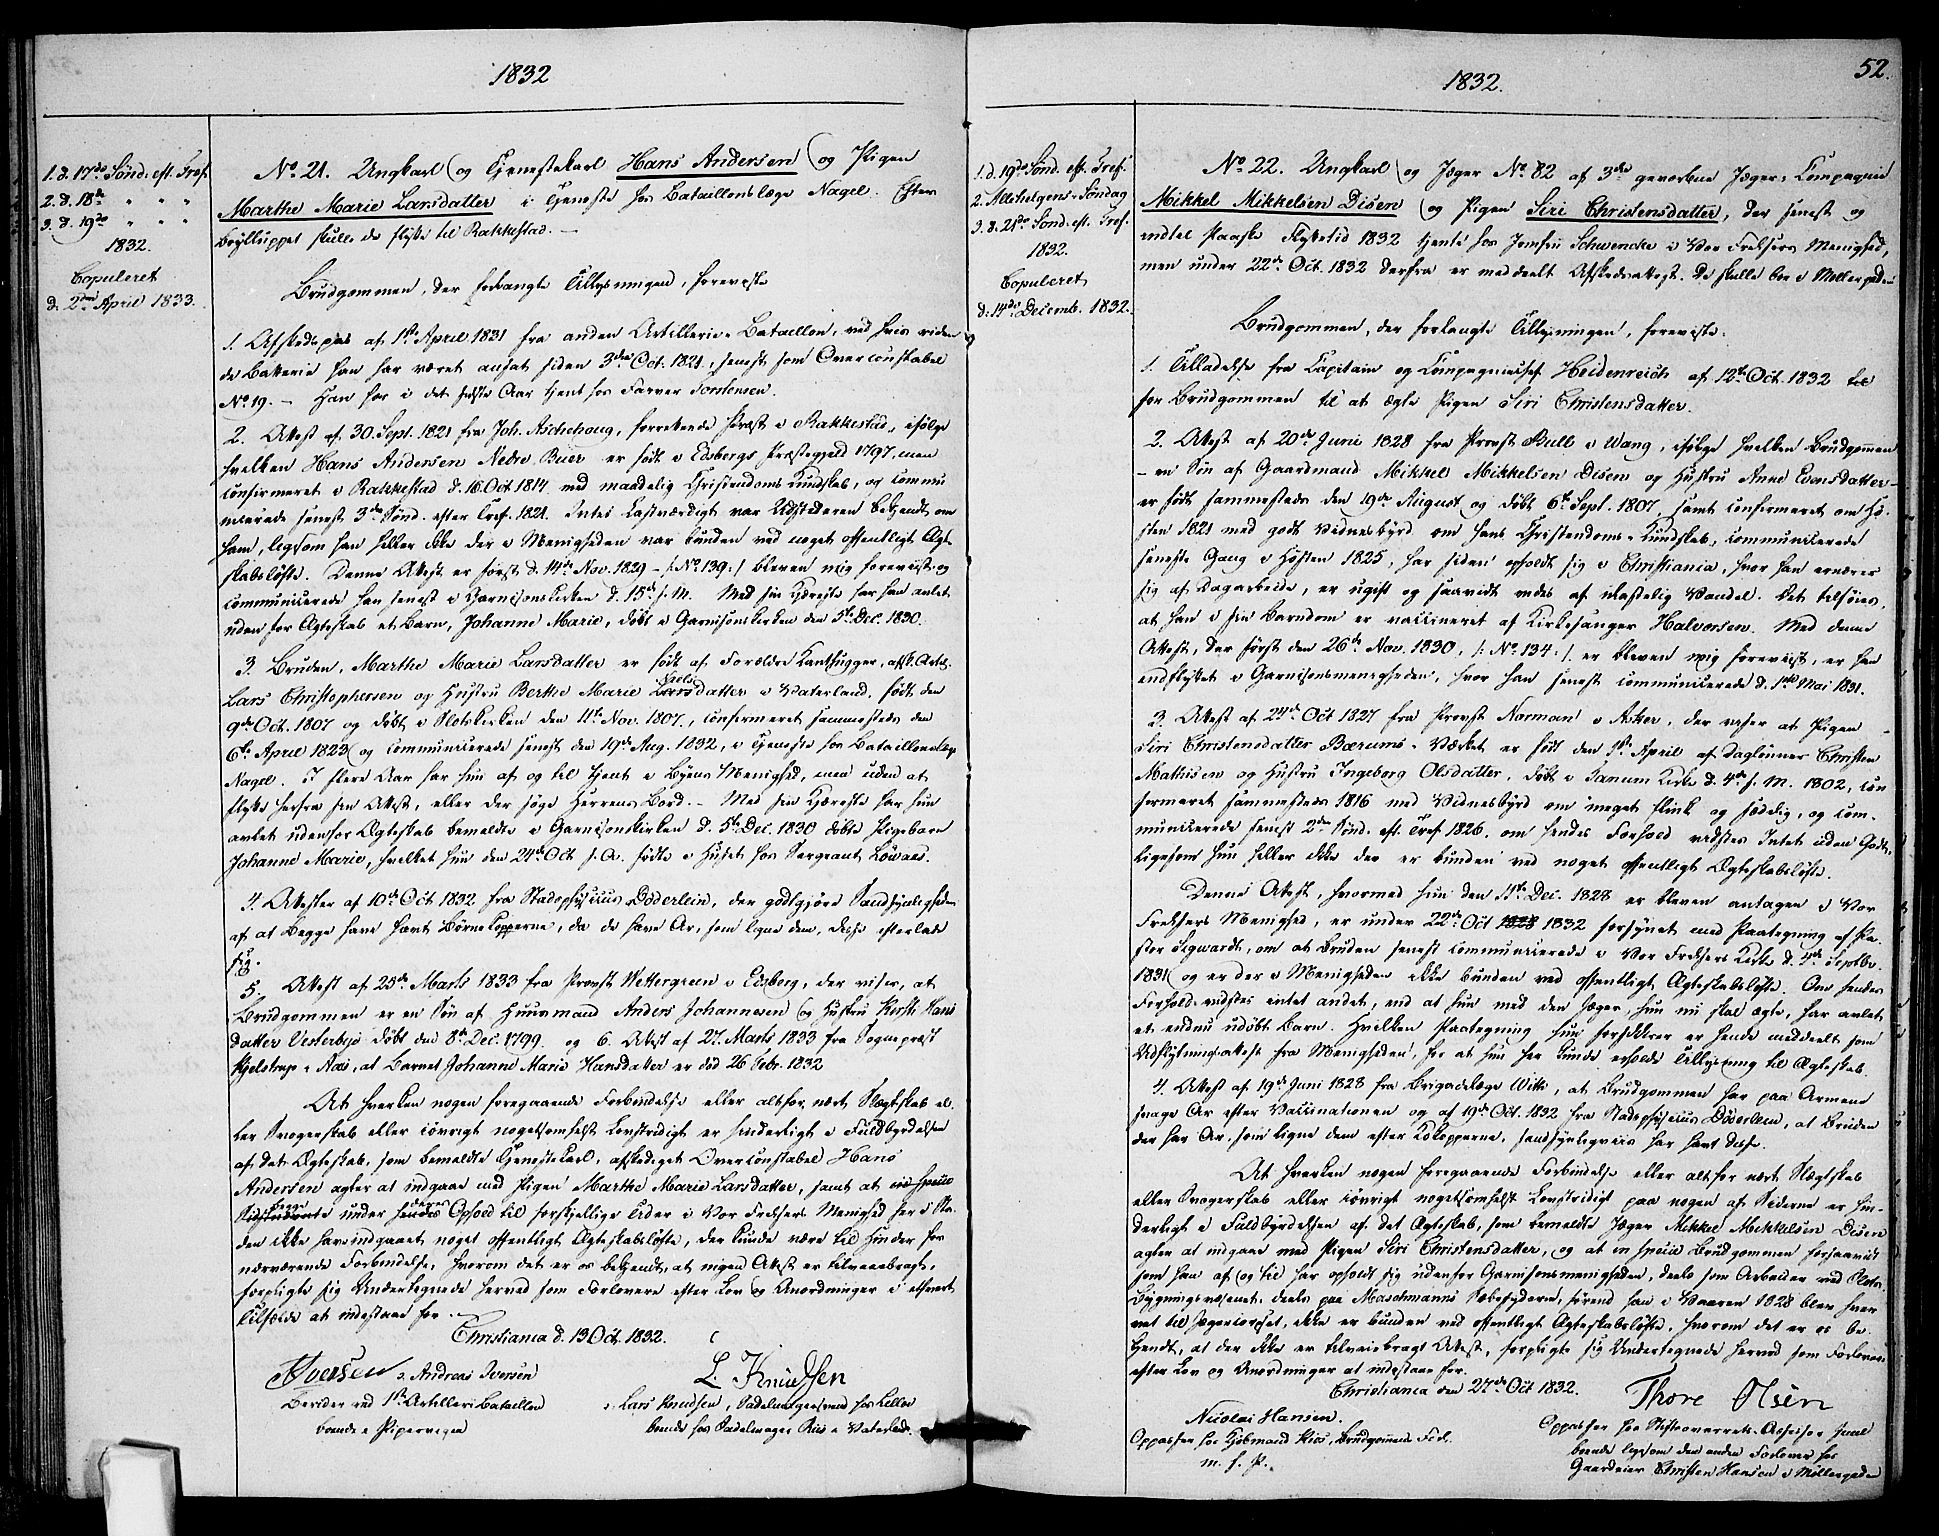 1832
1. d. 17de Sønd. eft. Tref.
2. d. 18de " " "
3. d. 19de " " "
1832.
Copuleret
d. 2den April 1833.
No. 21. Ungkarl og Tjenestekarl Hans Andersen og Pigen
Marthe Marie Larsdatter i Tjeneste hos Bataillonslæge Nagel. Efter
Brylluppet skulle de flytte til Rakkestad. —
Brudgommen, der forlangte Tillysningen, foreviste
1. Afskedspas af 1ste April 1831 fra anden Artillerie-Bataillon, ved hvis riden
de Batterie han har været ansat siden 3die Oct. 1821, senest som Overconstabel
No. 19. — Han har i det sidste Aar tjent hos Farver Torstensen.
2. Attest af 30. Sept. 1821 fra Joh. Aschehoug, Præst i Rakkestad, ifølge
hvilken Hans Andersen Nedre Buer er født i Edsbergs Præstegjeld 1797, men
confirmeret i Rakkestad d. 16 Oct 1814 med maadelig Christendoms Kundskab, og commu
nicerede senest 3die Sønd. efter Tref. 1821. Intet Lastværdigt var Udstederen bekjendt om
ham, ligesom han heller ikke der i Menigheden var bunden ved noget offentligt Ægte
skabsløfte. Denne Attest er først d. 14de Nov. 1829 /: No. 139 :/ bleven mig foreviist og
communicerede han senest i Garnisonskirken d. 15de s. M. Med sin Kjæreste har han avlet
uden for Ægteskab et Barn, Johanne Marie, døbt i Garnisonskirken den 5te Dec. 1830.
3. Bruden, Marthe Marie Larsdatter er født af Forældre Kanthugger, afsk. Artil.
Lars Christophersen og Hustru Berthe Marie Larsdatter i Vaterland, født den
9de Oct. 1807 og døbt i Slotskirken den 11te Nov. 1807, confirmeret sammesteds den
6te April 1823 og communicerede senest den 19de Aug. 1832, i Tjeneste hos Bataillonslæge
Nagel. I flere Aar har hun af og til tjent i Byens Menighed, men uden at
flytte herfra sin Attest, eller der søge Herrens Bord. — Med sin Kjæreste har hun
avlet udenfor Ægteskab bemeldte i Garnisonskirken d. 5te Dec. 1830 døbte Pigebarn
Johanne Marie, hvilket hun den 24de Oct s. A. fødte i Huset hos Sergeant Løvaas.
4. Attester af 10de Oct 1832 fra Stadsphysicus Döderlein, der godtgjøre Sandsynligheden
af at Begge have havt Børnekopperne, da de have Ar, som ligne dem, disse efterlade
sig.
5. Attest af 25de Marts 1833 fra Provst Wettergreen i Edsberg, der viser, at
Brudgommen er en Søn af Huusmand Anders Johannesen og Hustru Kersti Hans
datter Vesterbye døbt den 8de Dec. 1799. og 6. Attest af 27. Marts 1833 fra Sognepræst
Kjelstrup i Aas, at Barnet Johanne Marie Hansdatter er död 26 Febr. 1832
At hverken nogen foregaaende Forbindelse eller altfor nært Slægtskab el-
ler Svogerskab eller iøvrigt nogetsomhelst Lovstridigt er hinderligt i Fuldbyrdelsen
af det Ægteskab, som bemeldte Tjenestekarl, afskediget Overconstabel Hans
Andersen agter at indgaae med Pigen Marthe Marie Larsdatter, samt at
under Ophold til forskjellige Tider i Vor Frelsers Menighed her i Sta-
den ikke have indgaaet noget offentligt Ægteskabsløfte, der kunde være til Hinder for
nærværende Forbindelse, hvorom det er os bekjendt, at ingen Attest er tilveiebragt,
forpligte sig Undertegnede herved som Forlovere efter Lov og Anordninger i ethvert
Tilfælde at indestaae for. —
Christiania d. 13 Oct. 1832.
Iversen ɔ: Andreas Iversen
Berider ved 1ste Artilleri Bataillon
boende i Pipervigen
L. Knudsen
ɔ: Lars Knudsen, Sadelmagersvend
boende hos Sadelmager Riis i Vaterland.
1832.
52.
1. d. 19de Sønd. eft. Tref.
2. Allehelgens-Søndag
3. d. 21de Sønd. eft. Tref.
1832.
Copuleret
d. 14de Decemb. 1832.
No. 22. Ungkarl og Jæger No. 82 af 3die gevorbne Jæger-Compagnie
Mikkel Mikkelsen Disen og Pigen Siri Christensdatter, der senest og
indtil Paaske Flyttetid 1832 tjente hos Jomfru Schwencke i Vor Frelsers Menighed,
men under 22de Oct. 1832 derfra er meddeelt Afskedsattest. De skulle boe i Møllergaden
Brudgommen, der forlangte Tillysningen, foreviste:
1. Tilladelse fra Capitain og Compagniechef Heidenreich af 12te Oct. 1832
for Brudgommen til at ægte Pigen Siri Christensdatter.
2. Attest af 20de Juni 1828 fra Provst Bull i Wang, ifølge hvilken Brudgommen
— en Søn af Gaardmand Mikkel Mikkelsen Disen og Hustru Anne Evensdatter —
er født sammesteds den 19de August og døbt 6te Sept. 1807, samt confirmeret om Hø-
sten 1821 med godt Vidnesbyrd om hans Christendoms-Kundskab, communicerede
seneste Gang i Høsten 1825, har siden opholdt sig i Christiania, hvor han ernærer
sig af Dagarbeide, er ugift og saavidt vides af ulastelig Vandel. Det tilføies,
at han i sin Barndom er vaccineret af Kirkesanger Halvorsen. Med denne
Attest, der først den 26de Nov. 1830, /: No. 134 :/ er bleven mig foreviist, er han
indflyttet i Garnisonsmenigheden, hvor han senest communicerede d. 1ste Mai 1831.
3. Attest af 24de Oct 1827 fra Provst Norman i Asker, der viser at Pigen
Siri Christensdatter Bærums-Værket er født den 1ste April af Daglønner Christen
Mathisen og Hustru Ingeborg Olsdatter, døbt i Tanum Kirke d. 4de s. M. 1802, con
firmeret sammesteds 1816 med Vidnesbyrd om meget flink og sædelig, og com-
municerede senest 2den Sønd. eft. Tref. 1826. om hendes Forhold vidstes Intet uden Godt,
ligesom hun heller ikke der er bunden ved noget offentligt Ægteskabsløfte.
Denne Attest, hvormed hun den 11te Dec. 1828 er bleven antagen i Vor
Frelsers Menighed, er under 22de Oct 1828 1832 forsynet med Paategning af Pa-
stor Sigwardt, om at Bruden senest communicerede i Vor Frelsers Kirke d. 4de Septbr.
1831 og er der i Menigheden ikke bunden ved offentligt Ægteskabsløfte. Om hendes
Forhold vidstes intet andet, end at hun med den Jæger, hun nu skal ægte, har avlet
et endnu udøbt Barn. Hvilken Paategning hun forsikkrer er hende meddeelt som
Udflytningsattest fra Menigheden, for at hun her kunde erholde Tillysning til Ægteskab.
4. Attest af 19de Juni 1828 fra Brigadelæge Witt, at Brudgommen har paa Armene
svage Ar efter Vaccinationen og af 19de Oct. 1832 fra Stadsphysicus Döderlein, at Bruden
der har Ar, som ligne dem efter Kokopperne, sandsynligviis har havt disse.
At hverken nogen foregaaende Forbindelse eller altfor nært Slægtskab
eller Svogerskab eller iøvrigt nogetsomhelst Lovstridigt paa nogen af Siderne er hin-
derligt i Fuldbyrdelsen af det Ægteskab, som bemeldte Jæger Mikkel Mikkelsen Disen
agter at indgaae med Pigen Siri Christensdatter, og at in specie Brudgommen forsaavidt
som han af og til har opholdt sig udenfor Garnisonsmenigheden, deels som Arbeider ved Slots-
Bygningsvæsenet, deels paa Maschmanns Sæbesyderie, førend han i Vaaren 1828 blev hver
vet til Jægercorpset, ikke er bunden ved offentligt Ægteskabsløfte, hvorom det er os be-
kjendt, at der ikke er tilveiebragt Attest, forpligte sig Undertegnede herved som Forlovere
efter Lov og Anordninger at indestaae for.
Christiania den 27de Oct 1832.
Nicolai Hansen.
Oppasser hos Kjøbmand Kiær, Brudgommens Forl.
m. f. P.
Thore Olsen
Oppasser hos Stiftsoverrets-Assessor
boende ligesom den anden Forlover hos
Gaardeier Christen Hansen i Møllergaden